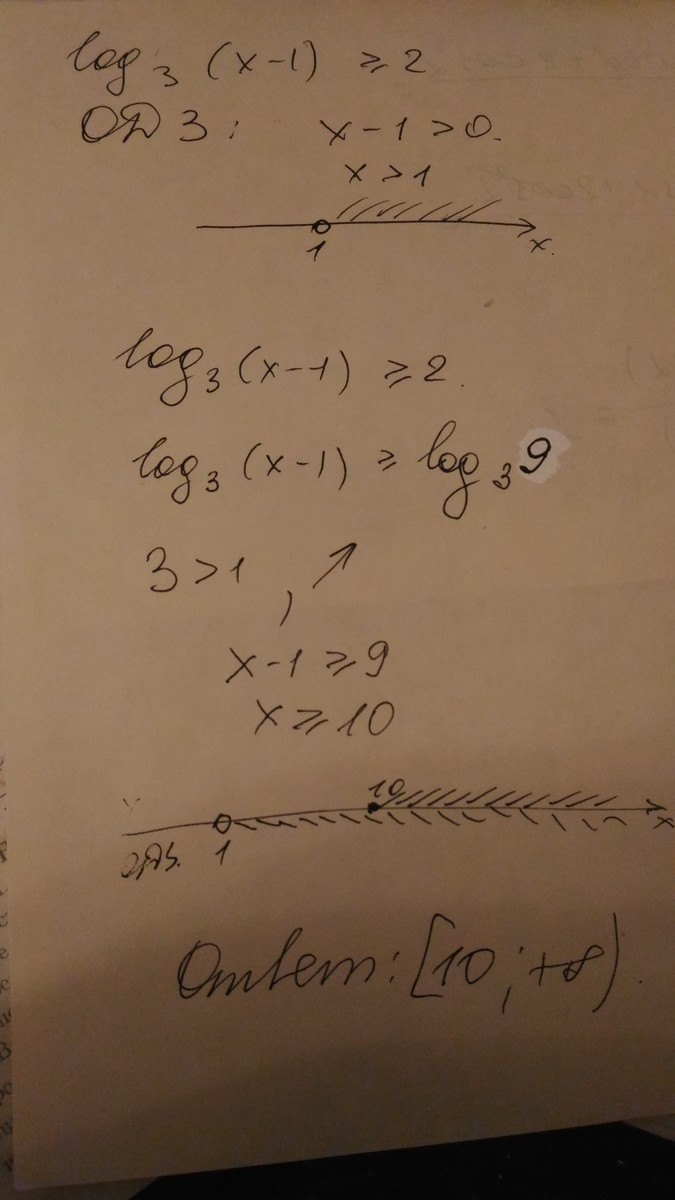 log₃ (x-1) ≥ 2
ОДЗ: x-1 > 0.
x > 1
1 x.
log₃ (x-1) ≥ 2.
log₃ (x-1) ≥ log₃ 9
3 > 1, ↗
x-1 ≥ 9
x ≥ 10
10
1 x
ОДЗ.
Ответ: [10; +∞).